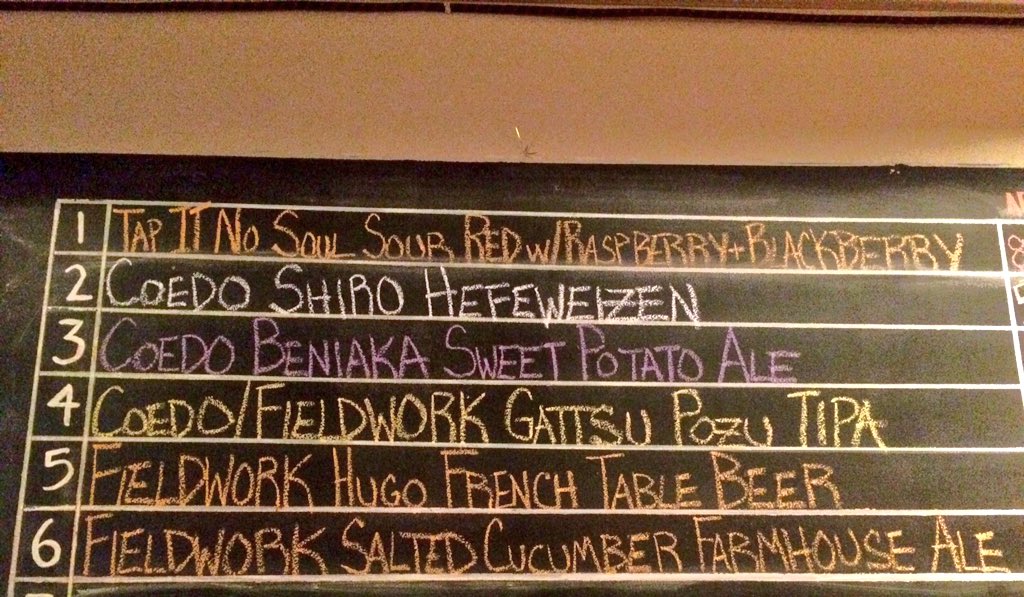 1 TAP IT NO SOUL SOUR RED W/RASPBERRY+BLACKBERRY
2 COEDO SHIRO HEFEWEIZEN
3 COEDO BENIAKA SWEET POTATO ALE
4 COEDO/FIELDWORK GATTSU POZU TIPA
5 FIELDWORK HUGO FRENCH TABLE BEER
6 FIELDWORK SALTED CUCUMBER FARMHOUSE ALE